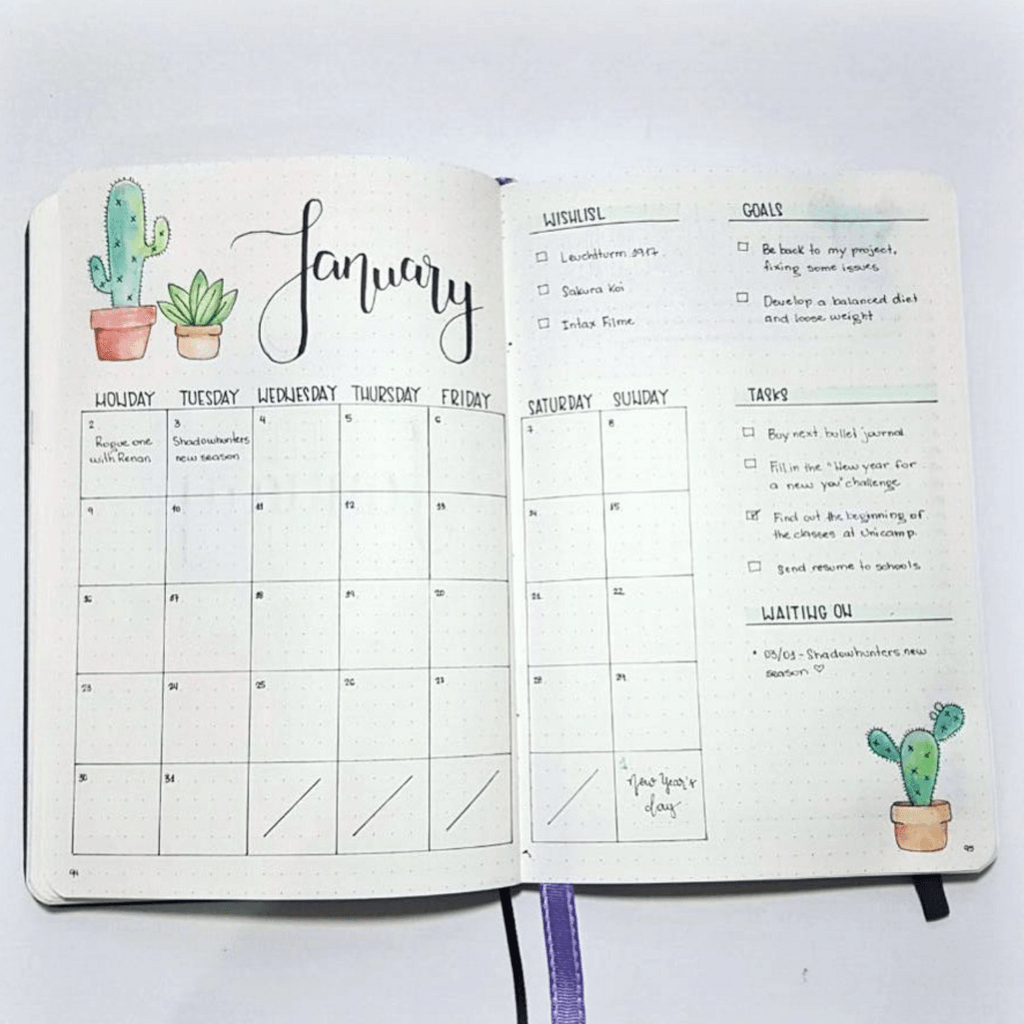 January
MONDAY TUESDAY WEDNESDAY THURSDAY FRIDAY
2 3 4 5 6
Rogue one Shadowhunters
with Renan new season
9 10 11 12 13
16 17 18 19 20
23 24 25 26 27
30 31
94
SATURDAY SUNDAY
7 8
14 15
21 22
28 29
1
New Year's
day
WISHLIST
Leuchtturm 1917
Sakura Koi
Intax Filme
GOALS
Be back to my project,
fixing some issues
Develop a balanced diet
and loose weight
TASKS
Buy next bullet journal
Fill in the "New year for
a new you" challenge
Find out the beginning of
the classes at Unicamp.
Send resume to schools
WAITING ON
• 03/01 - Shadowhunters new
season ♡
95